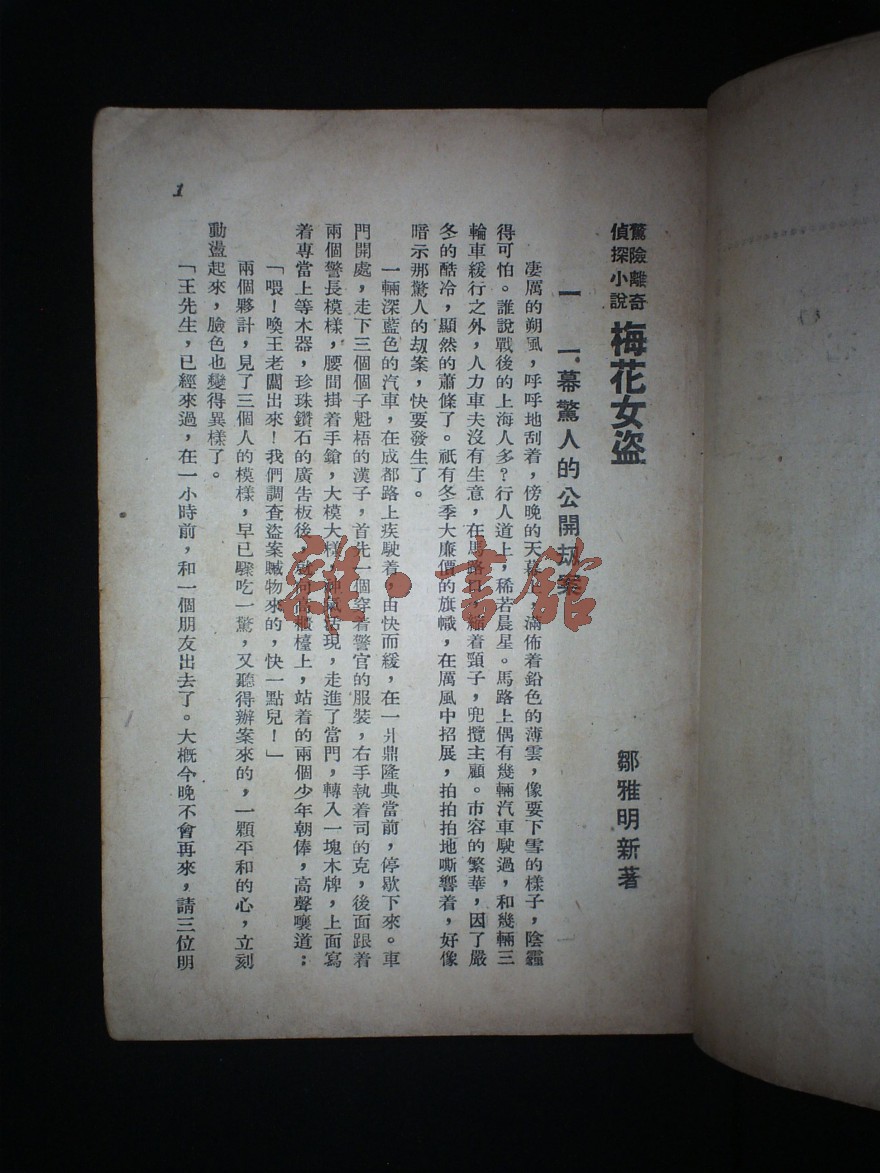 驚險離奇
偵探小說
梅花女盜
鄒雅明新著
一 一幕驚人的公開刼案
凄厲的朔風，呼呼地刮着，傍晚的天幕上，滿佈着鉛色的薄雲，像要下雪的樣子，陰霾
得可怕。誰說戰後的上海人多？行人道上，稀若晨星。馬路上偶有幾輛汽車駛過，和幾輛三
輪車緩行之外，人力車夫沒有生意，在馬路口，縮着頸子，兜攬主顧。市容的繁華，因了嚴
冬的酷冷，顯然的蕭條了。祇有冬季大廉價的旗幟，在厲風中招展，拍拍拍地嘶響着，好像
暗示那驚人的刼案，快要發生了。
一輛深藍色的汽車，在成都路上疾駛着，由快而緩，在一爿鼎隆典當前，停歇下來。車
門開處，走下三個個子魁梧的漢子，首先一個穿着警官的服裝，右手執着司的克，後面跟着
兩個警長模樣，腰間掛着手鎗，大模大樣，神氣活現，走進了當門，轉入一塊木牌，上面寫
着專當上等木器，珍珠鑽石的廣告板後，向高櫃檯上，站着的兩個少年朝俸，高聲嚷道；
「喂！喚王老闆出來！我們調查盜案贓物來的，快一點兒！」
兩個夥計，見了三個人的模樣，早已驟吃一驚，又聽得辦案來的，一顆平和的心，立刻
動盪起來，臉色也變得異樣了。
「王先生，已經來過，在一小時前，和一個朋友出去了。大概今晚不會再來，請三位明
1
雜·書館